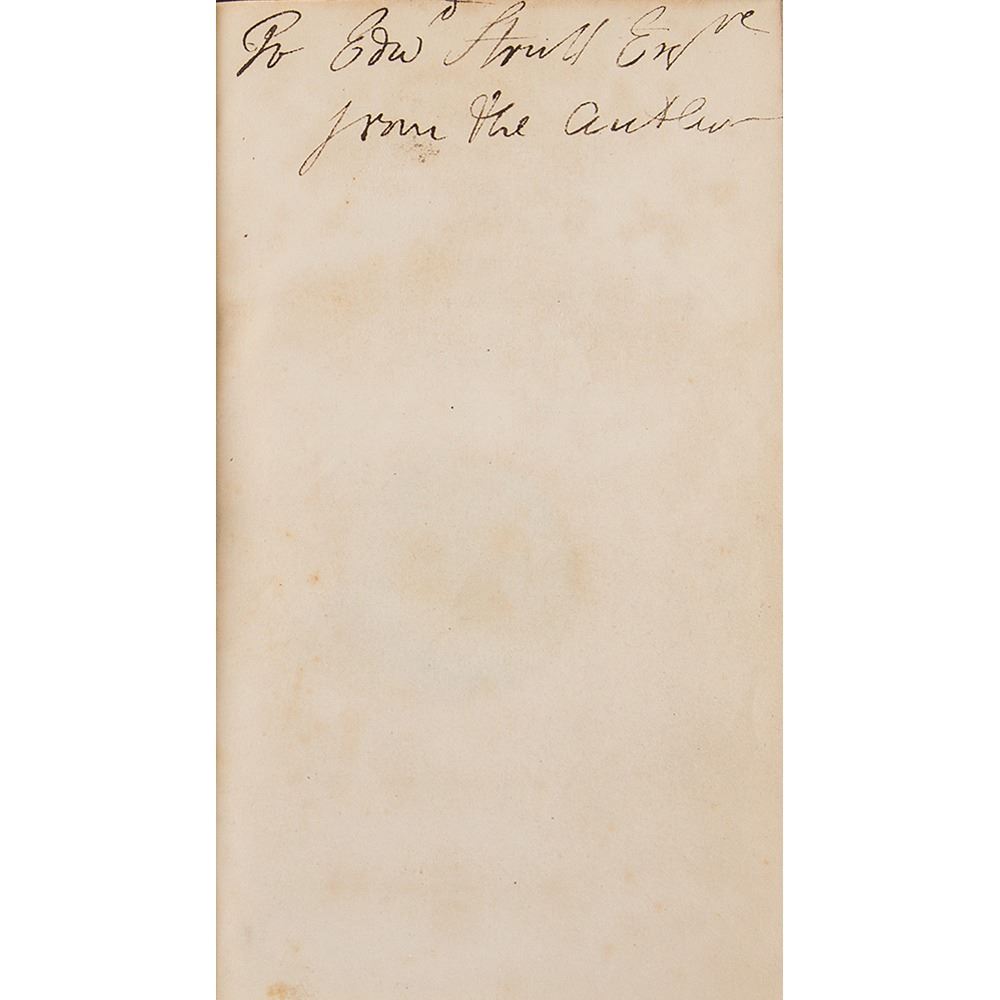 To Edwd Strutt Esqre
from the Author